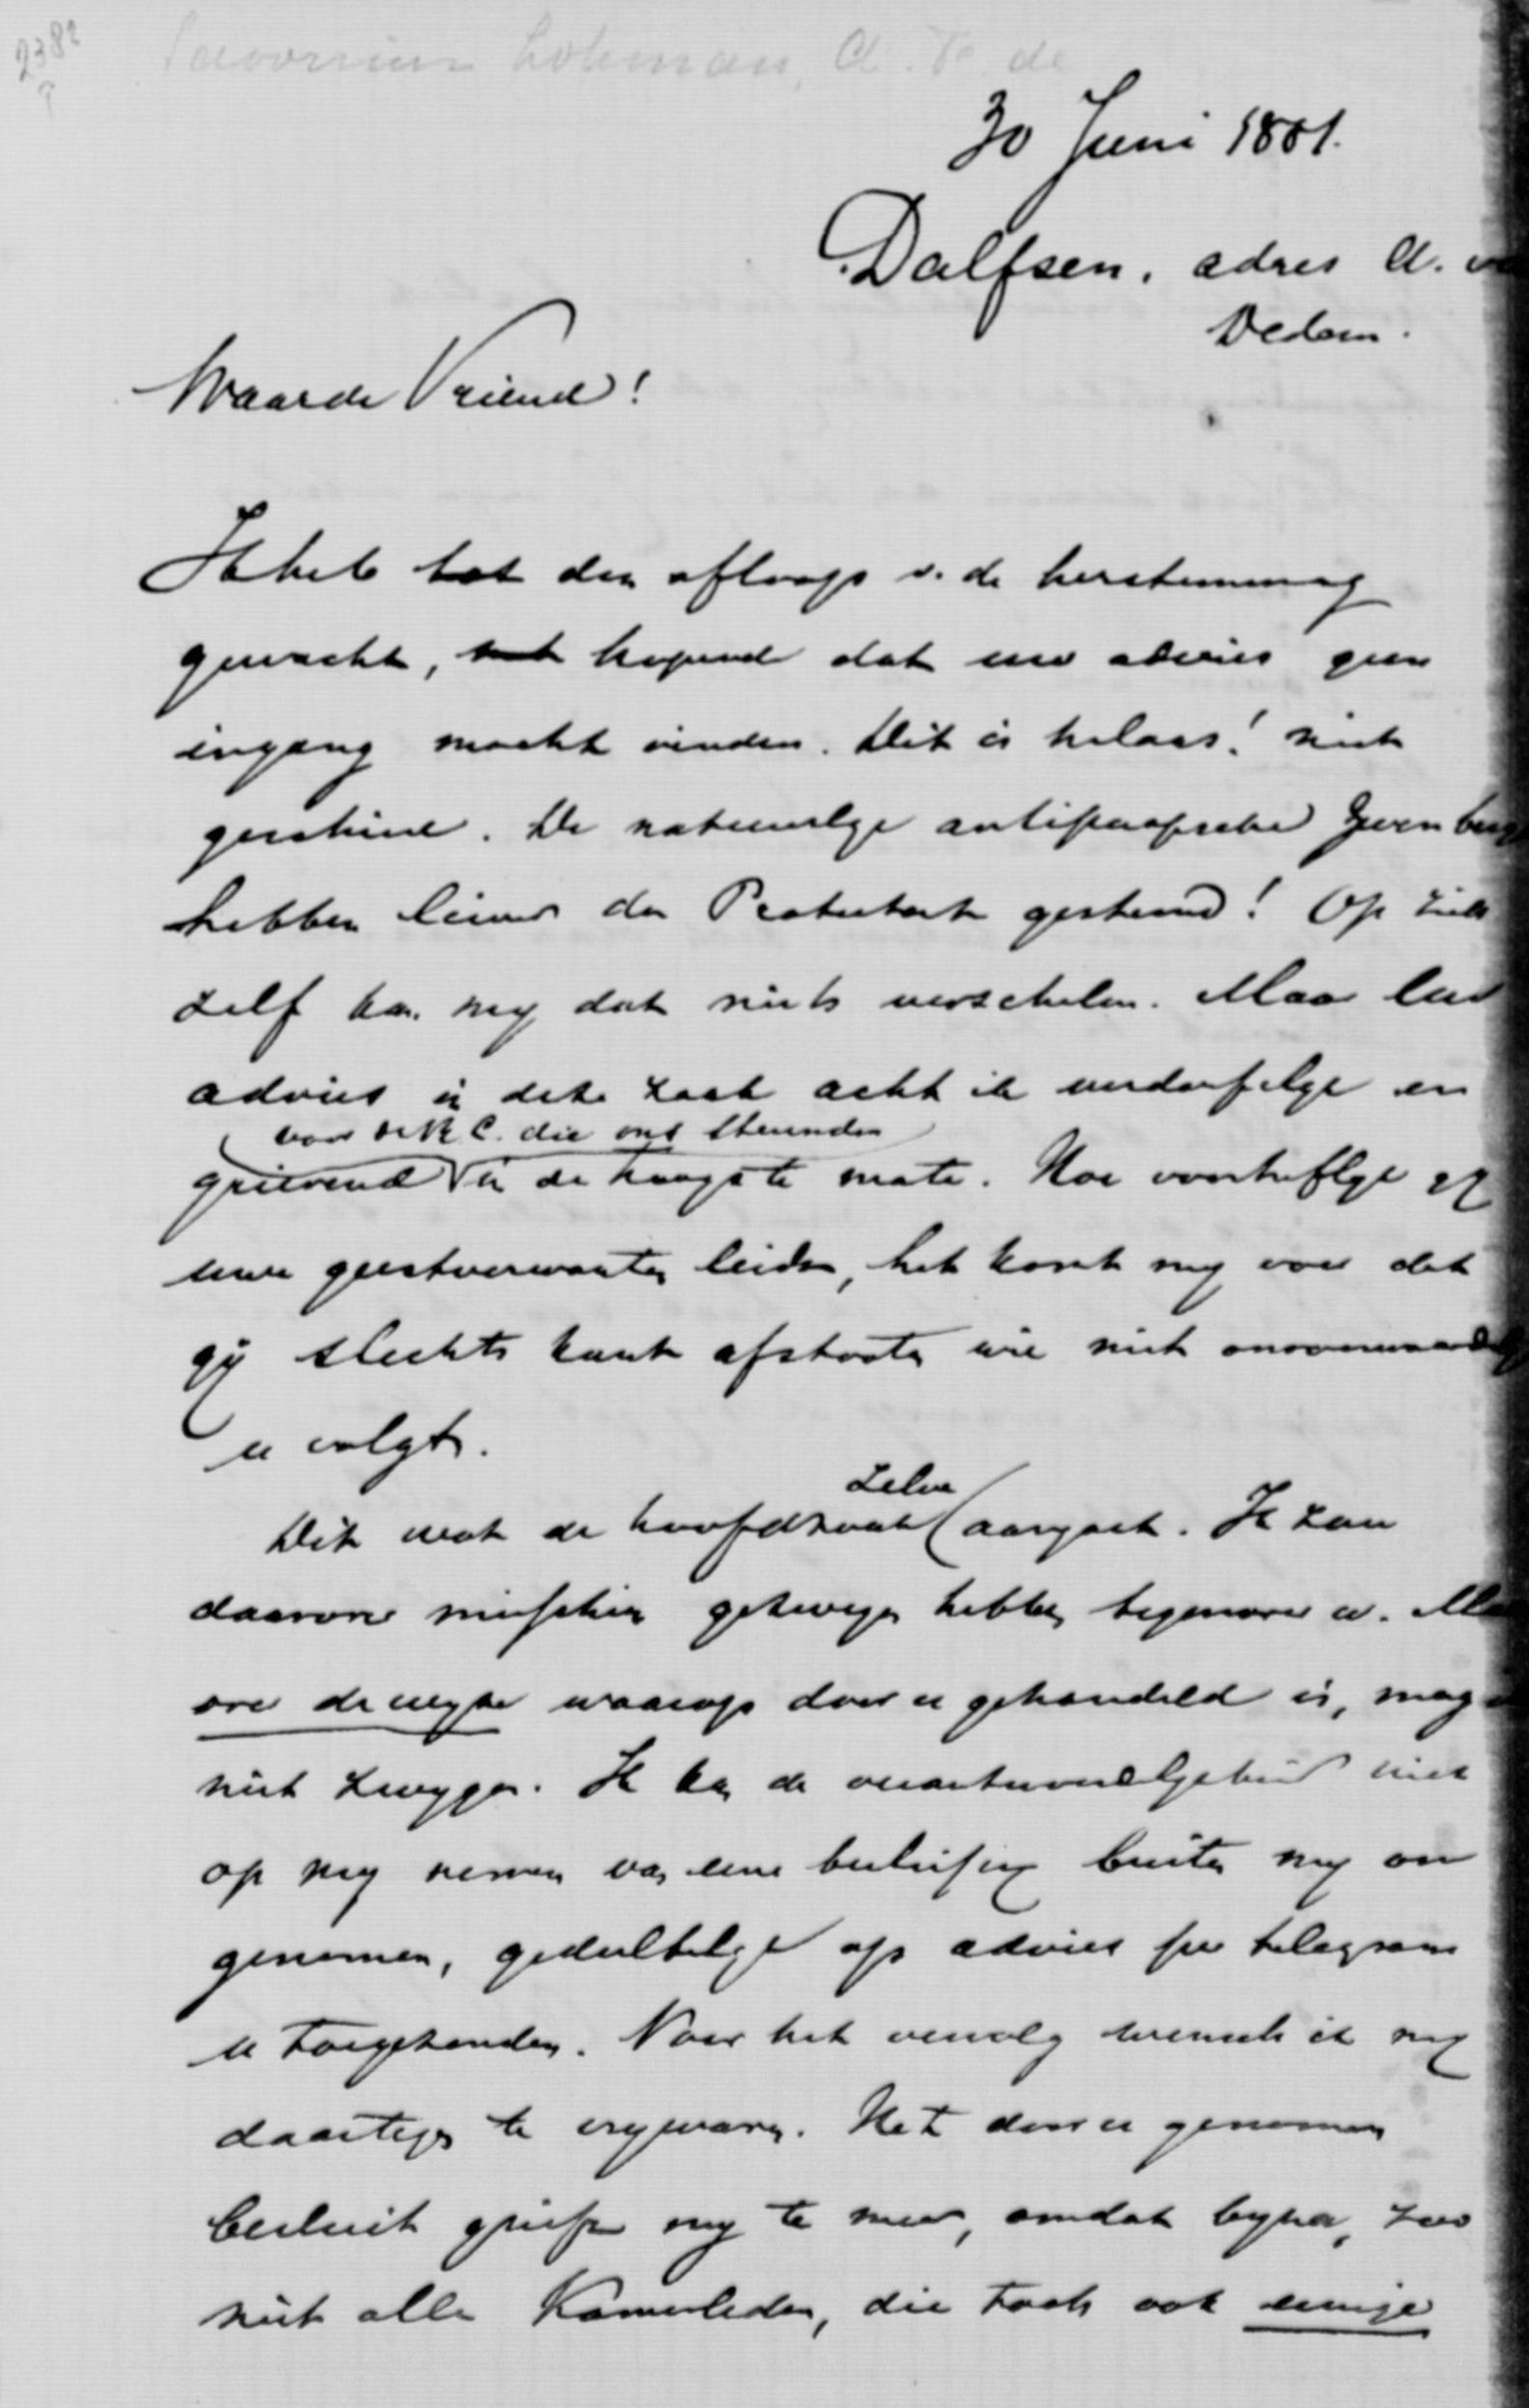 2382
Savornin Lohman, A. F. de
30 Juni 1881.
Dalfsen, adres A. v
Dedem.
Waarde Vriend!
Ik heb tot den afloop v. de herstemming
gewacht, hopend dat uw advies geen
ingang mocht vinden. Dit is helaas! niet
geschied. De natuurlyk antipaapsche
hebben liever den Protestant gestemd! Op zich
zelf kan my dat niets verschelen. Maar uw
advies in deze zaak acht ik verderfelyk en
voor de R C. die ons steunden
grievend in de hoogste mate. Hoe voortreffelyk gy
uwe geestverwanten leidde, het komt my voor dat
gy slechts kunt afstooten wie niet onvoorwaardelyk
u volgt.
Dit wat de hoofdzaak zelve aangaat. Ik zou
daarover misschien gezwegen hebben tegenover u. Maar
over de wyze waarop door u gehandeld is, mag
niet zwygen. Ik kan de verantwoordelykheid niet
op my nemen van eene beslissing buiten my om
genomen, gedeeltelyk op advies per telegram
u toegezonden. Voor het vervolg wensch ik my
daartegen te vrywaren. Het door u genomen
besluit grieft my te meer, omdat byna, zoo
niet alle Kamerleden, die toch ook eenige